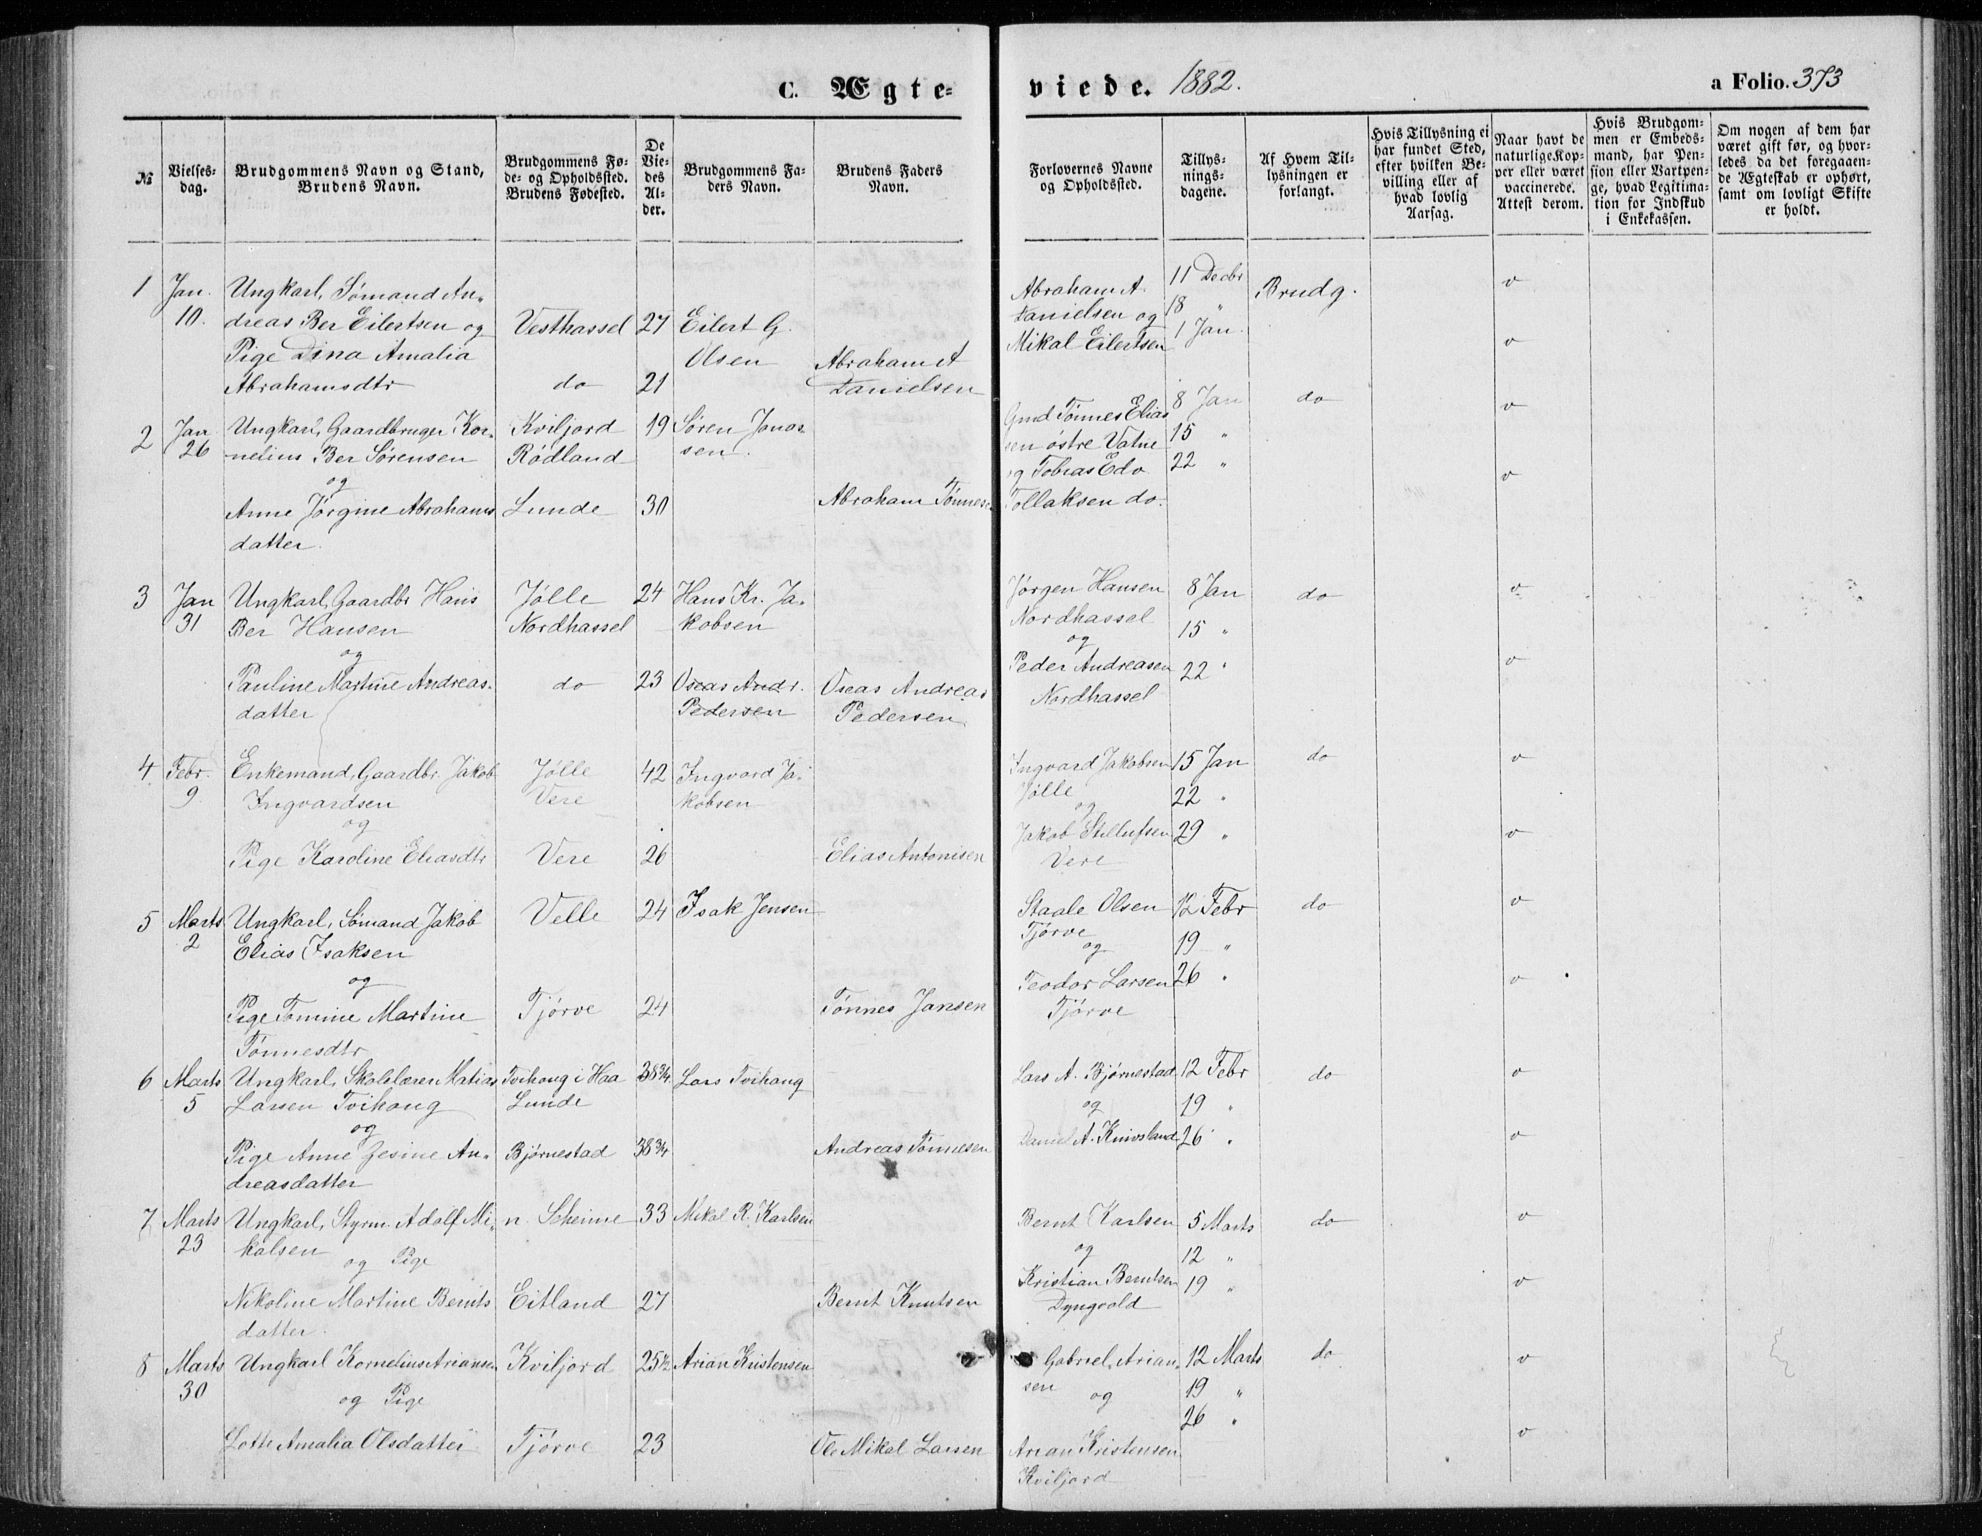 C. Ægte-
viede. 1882.
a Folio. 373
№
Vielses-
dag.
Brudgommens Navn og Stand,
Brudens Navn.
Brudgommens Fø-
de- og Opholdssted.
Brudens Fødested.
De
Vie-
des
Al-
der.
Brudgommens Fa-
ders Navn.
Brudens Faders
Navn.
Forlovernes Navne
og Opholdssted.
Tillys-
nings-
dagene.
Af Hvem Til-
lysningen er
forlangt.
Hvis Tillysning ei
har fundet Sted,
efter hvilken Be-
villing eller af
hvad lovlig
Aarsag.
Naar havt de
naturlige Kop-
per eller været
vaccinerede.
Attest derom.
Hvis Brudgom-
men er Embeds-
mand, har Pen-
sion eller Vartpen-
ge, hvad Legitima-
tion for Indskud
i Enkekassen.
Om nogen af dem har
været gift før, og hvor-
ledes da det foregaaen-
de Ægteskab er ophørt,
samt om lovligt Skifte
er holdt.
1 Jan. Ungkarl, Sømand An- Abraham A. 11 Decbr Brudg. v
10. dreas Ber Eilertsen og Vesthassel 27 Eilert G. Danielsen og 18 "
Pige Dina Amalia Olsen Abraham A Mikal Eilertsen 1 Jan. v
Abrahamsdtr do 21 Danielsen
2 Jan Ungkarl, Gaardbruger Kor- Kviljord 19 Søren Jonas- Gmd Tønnes Elias 8 Jan do v
26 nelius Ber Sørensen Rødland sen. sen østre Vatne 15 "
og og Tobias Edv 22 " v
Anne Jørgine Abrahams Lunde 30 Abraham Tønnes Tollaksen do.
datter.
3 Jan Ungkarl, Gaardbr Hans Jølle 24 Hans Kr. Ja- Jørgen Hansen 8 Jan do v
31 Ber Hansen Nordhassel kobsen Nordhassel 15 "
og og
Pauline Martine Andreas- do 23 Oseas Andr. Oseas Andreas Peder Andreasen 22 " v
datter Pedersen Pedersen Nordhassel
4 Febr. Enkemand, Gaardbr. Jakob Jølle 42 Ingvard Ja- Ingvard Jakobsen 15 Jan do v
9 Ingvardsen Vere kobsen Jølle 22 "
og og
Jakob Stellufsen 29 " v
Pige Karoline Eliasdtr Vere 26 Elias Antonisen Vere
5 Marts Ungkarl, Sømand Jakob Velle 24 Isak Jensen Staale Olsen 12 Febr do v
2 Elias Isaksen Tjørve 19 "
og og
Teodor Larsen 26 " v
Pige Tomine Martine Tjørve 24 Tønnes Jansen Tjørve
Tønnesdtr
6 Marts Ungkarl, Skolelærer Matias Tvihaug i Haa 38¾ Lars Tvihaug Lars A. Bjørnestad 12 Febr do v
5 Larsen Tvihaug Lunde og 19 "
og Daniel A. Knivsland 26 " v
Pige Anne Jesine An- Bjørnestad 38¾ Andreas Tønnesen
dreasdatter
7 Marts Ungkarl, Styrm. Adolf Mi- n. Skeime 33 Mikal R. Karlsen Bernt Karlsen 5 Marts do v
23 kalsen og 12 "
og Pige Kristian Berntsen 19 " v
Nikoline Martine Bernts Eitland 27 Bernt Knutsen Dyngvold
datter.
8 Marts Ungkarl Kornelius Ariansen Kviljord 25½ Arian Kristensen Gabriel Arian- 12 Marts do v
30 sen 19 "
og Pige og 26 "
Lotte Amalia Olsdatter Tjørve 23 Ole Mikal Larsen Arian Kristensen v
Kviljord